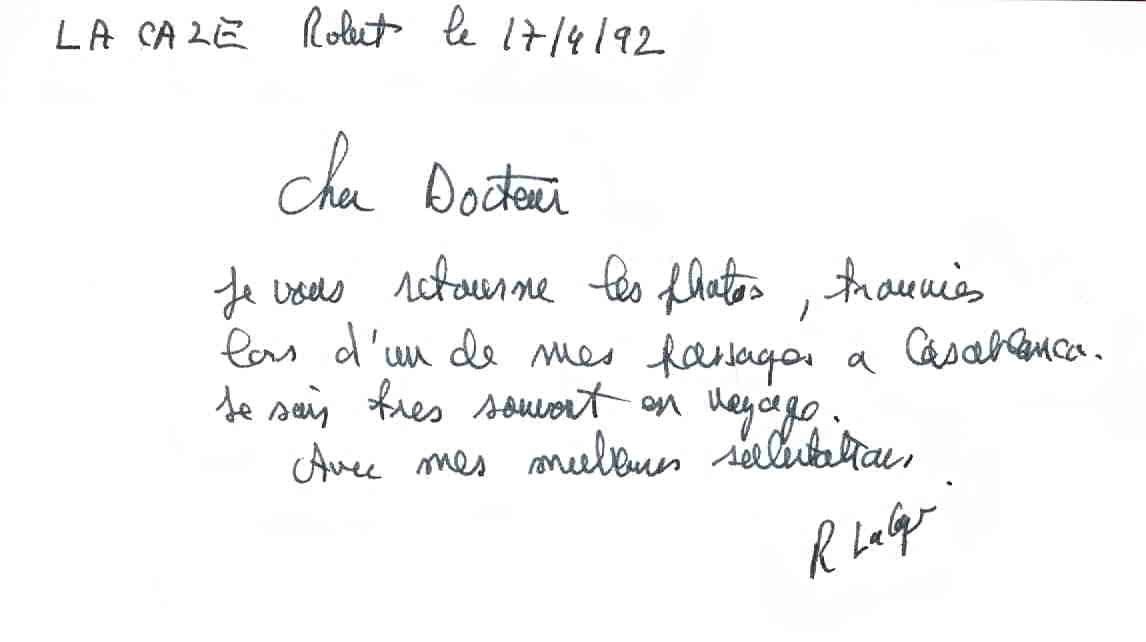 LA CAZE Robert le 17/4/92
Cher Docteur
Je vous retourne les photos, trouvées
lors d'un de mes passages a Casablanca.
Je suis tres souvent en voyage.
Avec mes meilleures salutations.
R LaCaze